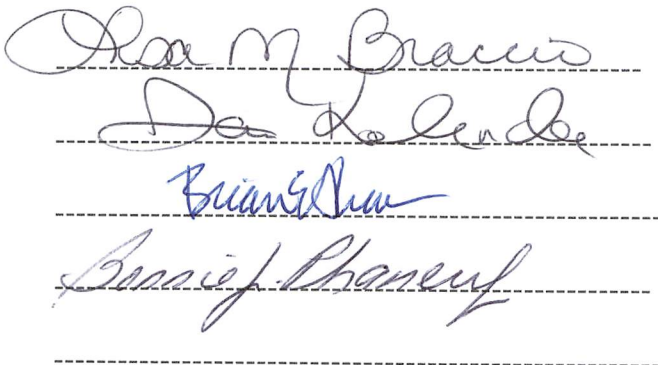 M Braccio
Dan Kolenda
Brian E Shaw
Bonnie J. Phaneuf